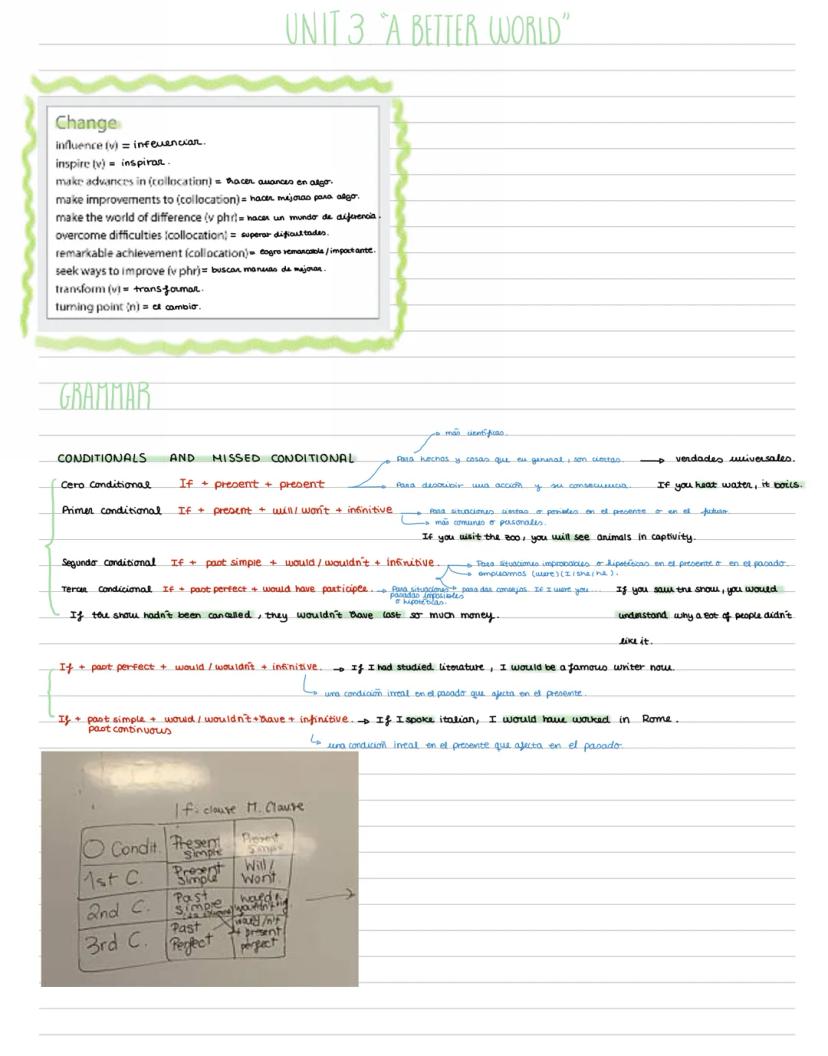 UNIT 3 "A BETTER WORLD"
Change
influence (v) = influenciar.
inspire (v) = inspirar.
make advances in (collocation) = hacer avances en algo.
make improvements to (collocation) = hacer mejoras para algo.
make the world of difference (v phr) = hacer un mundo de diferencia.
overcome difficulties (collocation) = superar dificultades.
remarkable achievement (collocation) = logro remarcable/importante.
seek ways to improve (v phr) = buscar maneras de mejorar.
transform (v) = transformar.
turning point (n) = el cambio.
GRAMMAR
más científicas.
CONDITIONALS AND MISSED CONDITIONAL
Para hechos y cosas que en general, son ciertas. → verdades universales.
Cero Conditional If + present + present
Para describir una acción y su consecuencia. If you heat water, it boils.
Primer conditional If + present + will/won't + infinitive
Para situaciones ciertas o posibles en el presente o en el futuro.
más comunes o personales.
If you visit the zoo, you will see animals in captivity.
Segundo conditional If + past simple + would/wouldn't + infinitive.
Para situaciones improbables o hipotéticas en el presente o en el pasado.
empleamos (were) (I/she/he).
Tercer Condicional If + past perfect + would have participle. → Para situaciones pasadas imposibles o hipotéticas.
para dar consejos. If I were you...
If you saw the show, you would
understand why a lot of people didn't
like it.
If the show hadn't been cancelled, they wouldn't have lost so much money.
If + past perfect + would/wouldn't + infinitive. → If I had studied literature, I would be a famous writer now.
una condición irreal en el pasado que afecta en el presente.
If + past simple + would/wouldn't + have + infinitive. → If I spoke italian, I would have worked in Rome.
past continuous
una condición irreal en el presente que afecta en el pasado
If-clause M. Clause
0 Condit. Present simple Present simple
1st C. Present Simple Will/Won't.
2nd C. Past simple would/wouldn't
3rd C. Past Perfect would/n't + present perfect